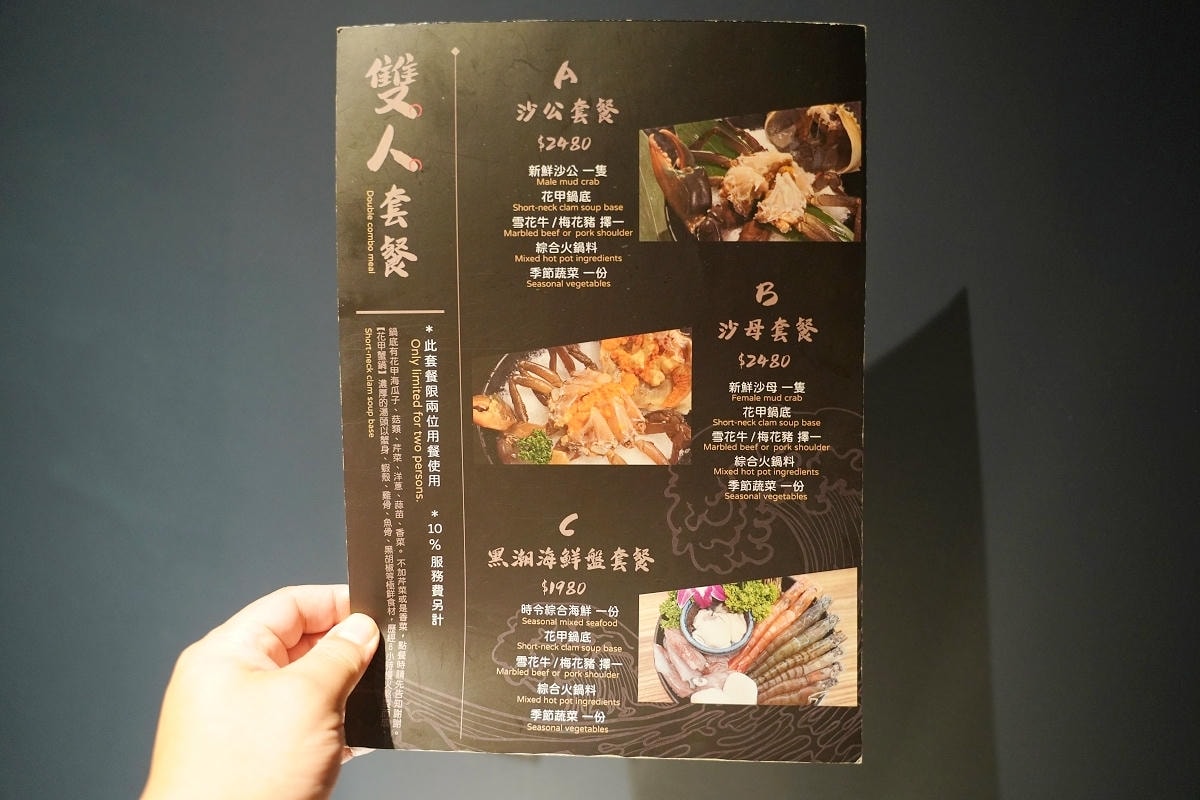 雙人套餐
Double combo meal
*此套餐限兩位用餐使用 *10%服務費另計
Only limited for two persons.
鍋底有花甲海瓜子、菇類、芹菜、洋蔥、蒜苗、香菜。不加芹菜或是香菜,點餐時請先告知謝謝。
【花甲蟹鍋】濃厚的湯頭以蟹身、蝦殼、雞骨、魚骨、黑胡椒等極鮮食材,歷經8小時
Short-neck clam soup base
A
沙公套餐
$2480
新鮮沙公 一隻
Male mud crab
花甲鍋底
Short-neck clam soup base
雪花牛/梅花豬 擇一
Marbled beef or pork shoulder
綜合火鍋料
Mixed hot pot ingredients
季節蔬菜 一份
Seasonal vegetables
B
沙母套餐
$2480
新鮮沙母 一隻
Female mud crab
花甲鍋底
Short-neck clam soup base
雪花牛/梅花豬 擇一
Marbled beef or pork shoulder
綜合火鍋料
Mixed hot pot ingredients
季節蔬菜 一份
Seasonal vegetables
C
黑潮海鮮盤套餐
$1980
時令綜合海鮮 一份
Seasonal mixed seafood
花甲鍋底
Short-neck clam soup base
雪花牛/梅花豬 擇一
Marbled beef or pork shoulder
綜合火鍋料
Mixed hot pot ingredients
季節蔬菜 一份
Seasonal vegetables